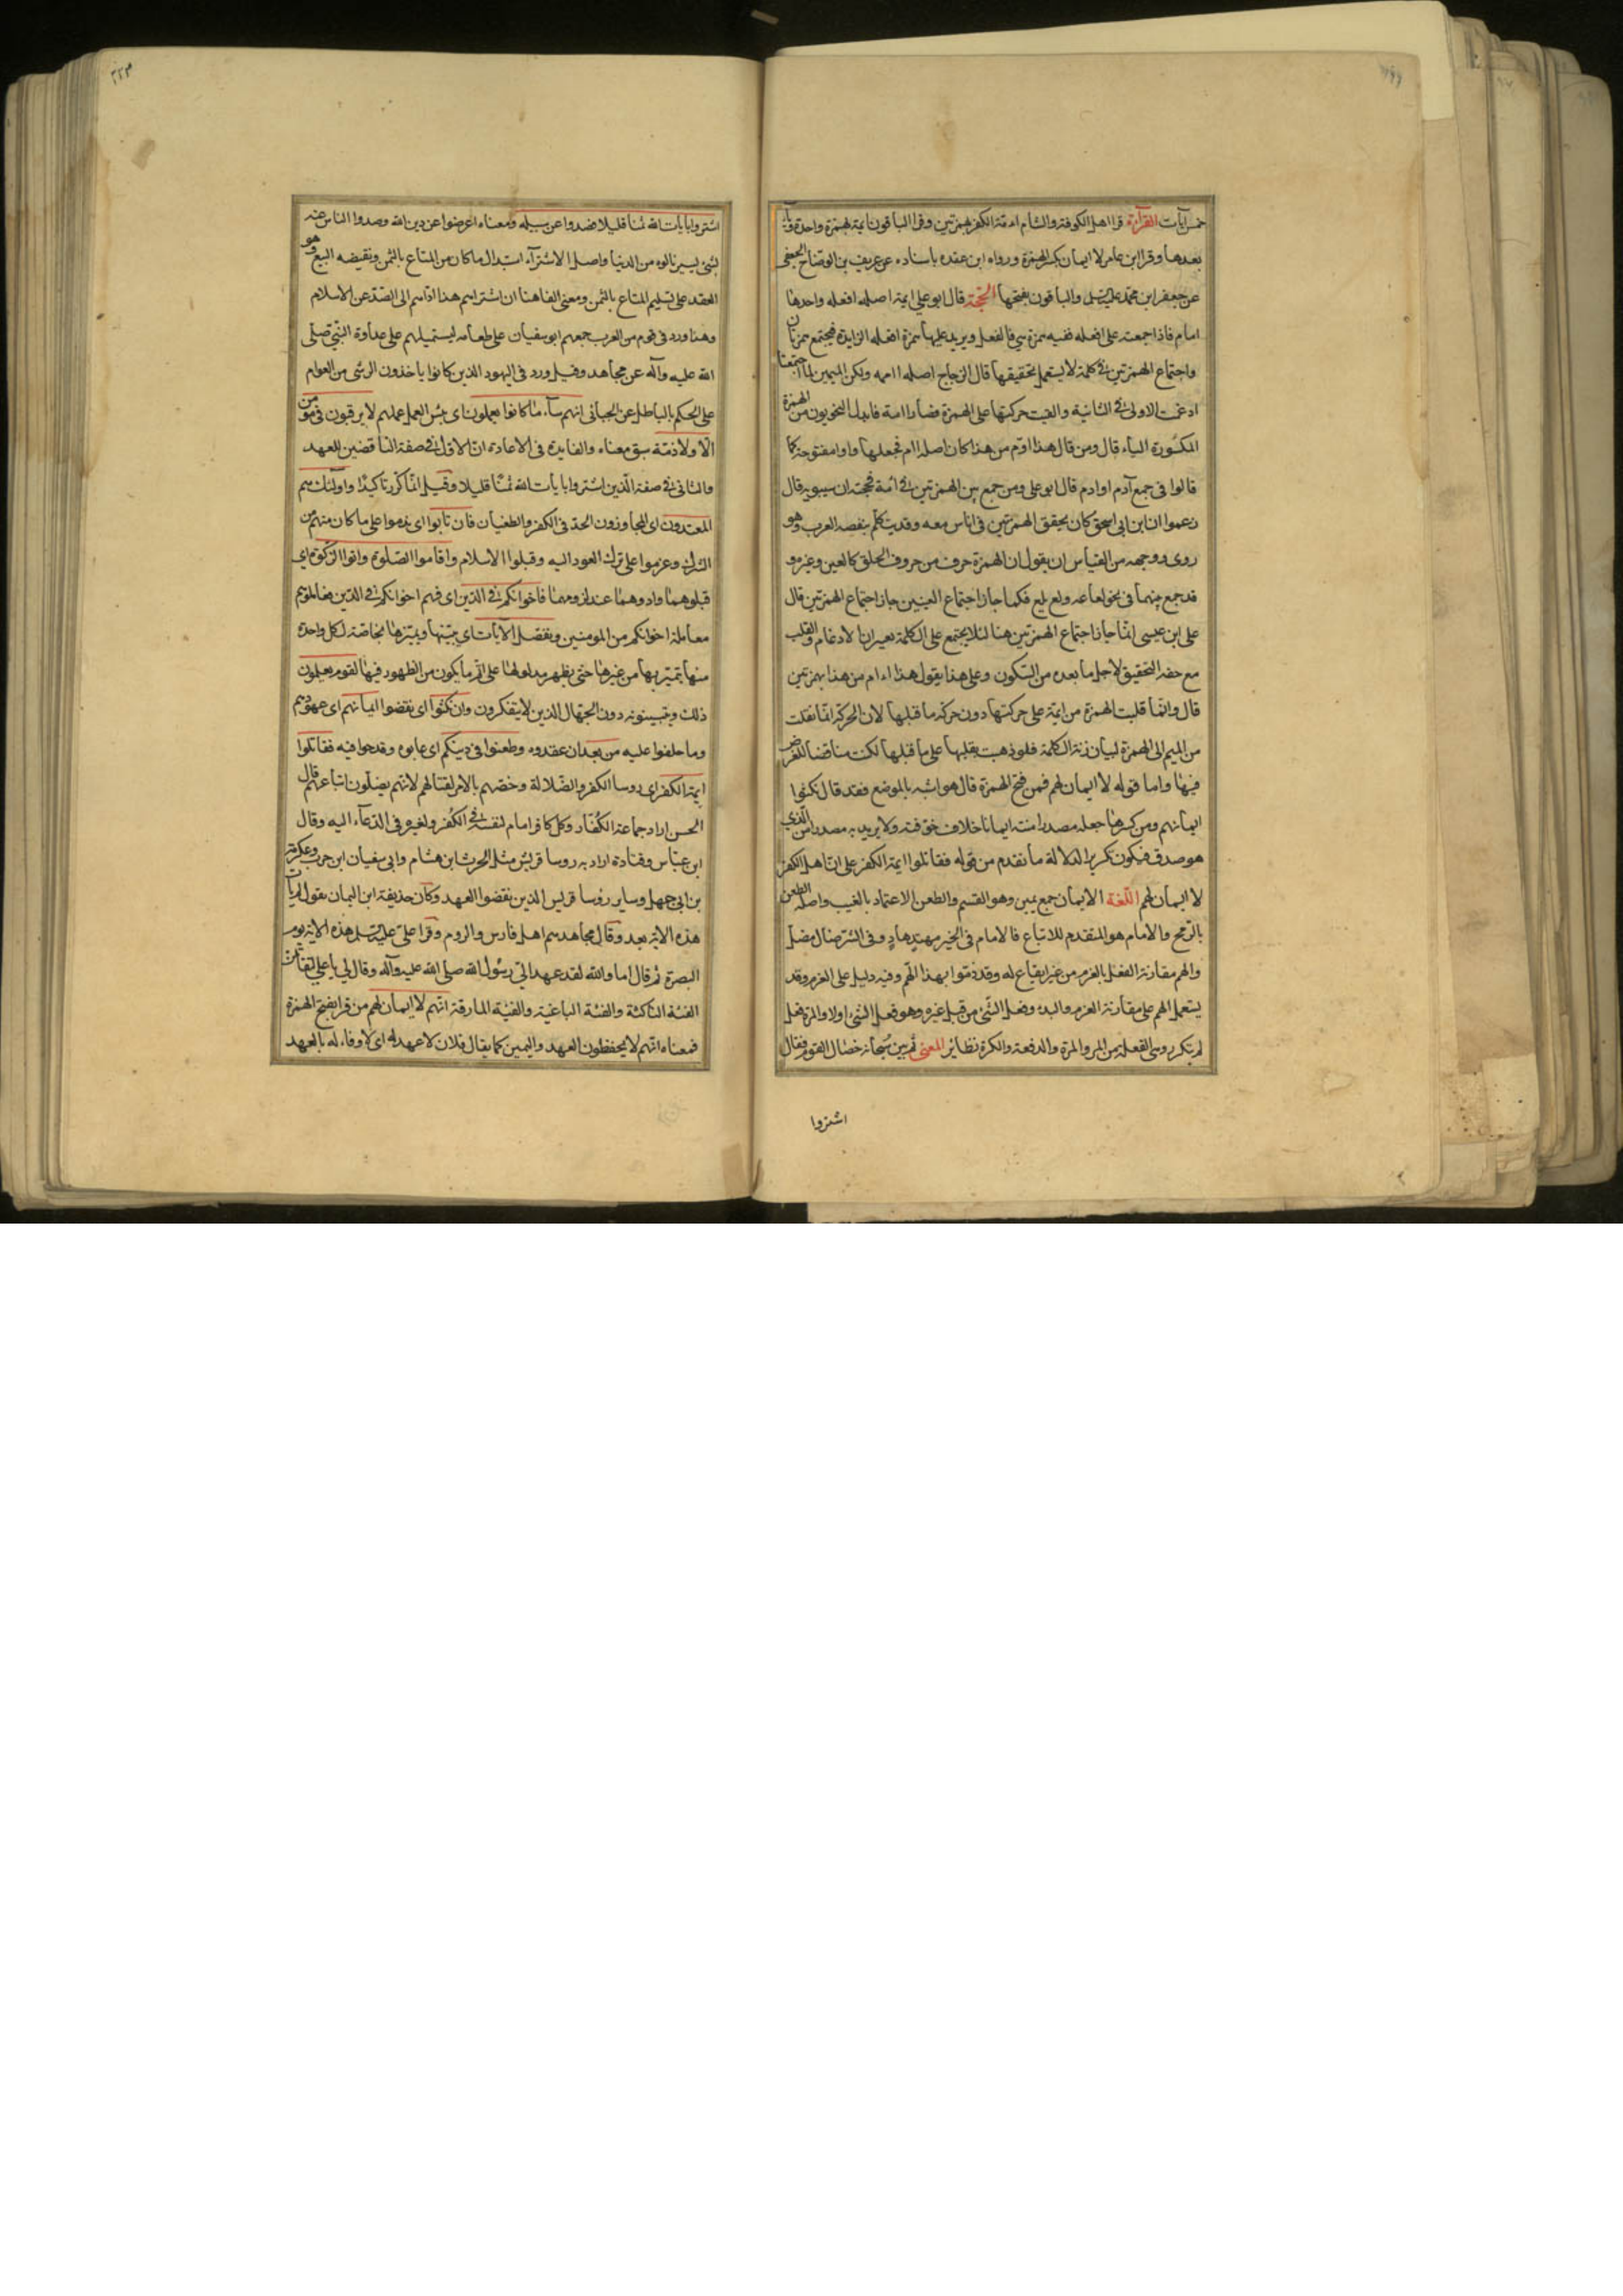 خمس ايات القرآءة قرا اهل الكوفة والشام اءمة الكفر بهمزتين وقرا الباقون ايمة بهمزة واحدة ويآء
بعدها وقرا ابن عامر لا ايمان بكسر الهمزة ورواه ابن عقده باسناده عن عريف بن الوضاح الجعفى
عن جعفر ابن محمد عليه السلم والباقون بفتحها الحجّة قال ابو على ايمة اصله افعله واحدها
امام فاذا جمعته على افعله ففيه همزة هي فا الفعل ويزيد عليها همزة افعله الزايدة فيجتمع همزتان
واجتماع الهمزتين في كلمة لا يستعمل بتحقيقها قال الزجاج اصله ااممه ولكن الميمين لما اجتمعتا
ادغمت الاولى في الثانية والقيت حركتها على الهمزة فصار اامة فابدل النحويون من الهمزة
المكسورة الياء قال ومن قال هذا اوّم من هذا كان اصله اام فجعلها واوا مفتوحة كما
قالوا فى جمع آدم اوادم قال ابو على ومن جمع بين الهمزتين في ائمة فحجته ان سيبويه قال
زعموا ان ابن ابى اسحق كان يحقق الهمزتين فى اناس معه وقد يتكلم ببعضه العرب وهو
ردى ووجهه من القياس ان يقول ان الهمزة حرف من حروف الحلق كالعين وغيره و
قد جمع بينهما فى نحو لعاعه ولع يلع فكما جاز اجتماع العينين جاز اجتماع الهمزتين قال
على ابن عيسى انما جاز اجتماع الهمزتين هنا لئلا يجتمع على الكلمة تغييران لادغام والقلب
مع خفة التحقيق لاجل ما بعده من السكون وعلى هذا يقول هذا اءام من هذا بهمزتين
قال وانما قلبت الهمزة من ايمة على حركتها دون حركة ما قبلها لان الحركة انما نقلت
من الميم الى الهمزة لبيان زنة الكلمة فلو ذهبت بقلبها على ما قبلها لكنت مناقضا للغرض
فيها واما قوله لا ايمان لهم فمن فتح الهمزة قال هو اشبه بالموضع فقد قال نكثوا
ايمانهم ومن كسرها جعله مصدرا منته ايمانا خلاف خوّفته ولا يريد به مصدرا من الذي
هو صدق فيكون تكريرا لدلالة ما تقدم من قوله فقاتلوا ايمة الكفر على ان اهل الكفر
لا ايمان لهم اللّغة الايمان جمع يمين وهو القسم والطعن الاعتماد بالغيب واصله الطعن
بالرمح والامام هو المتقدم للاتباع فالامام فى الخير مهتد هاد وفى الشر ضال مضل
والهم مقارنة الفعل بالعزم من غير ايقاع له وقد ذموا بهذا الهم وفيه دليل على العزم وقد
يستعمل الهم على مقارنة العزم والبدء وفعل الشئ من قبل غيره وهو فعل الشئ اولا والمرة فعل
لم يتكرر وهى الفعلة من المر والمرة والدفعة والكرة نظائر المعنى ثم بين سبحانه خصال القوم فقال
اشتروا
اشتروا بايات الله ثمنا قليلا فصدوا عن سبيله ومعناه اعرضوا عن دين الله وصدوا الناس عنه
بشئ يسير نالوه من الدنيا واصل الاشترآء استبدال ما كان من المتاع بالثمن ونقيضه البيع وهو
العقد على تسليم المتاع بالثمن ومعنى الفا هنا ان اشتراهم هذا ادّاهم الى الصدّ عن الاسلام
وهذا ورد فى قوم من العرب جمعهم ابو سفيان على طعامه ليستميلهم على عداوة النبي صلّى
الله عليه وآله عن مجاهد وقيل ورد فى اليهود الذين كانوا ياخذون الرشى من العوام
على الحكم بالباطل عن الجبائى انهم سآء ما كانوا يعملون اى بئس العمل عملهم لا يرقبون فى مؤمن
الّا ولا ذمّة سبق معناه والفايدة فى الاعادة ان الاوّل في صفة الناقضين للعهد
والثانى في صفة الّذين اشتروا بايات الله ثمنًا قليلا وقيل انّما كرّر تاكيدًا واولئك هم
المعتدون اى المجاوزون الحدّ فى الكفر والطغيان فان تابوا اى ندموا على ما كان منهم من
الشرك وعزموا على ترك العود اليه وقبلوا الاسلام واقاموا الصّلوة واتوا الزكوة اي
قبلوهما وادوهما عند لزومهما فاخوانكم في الدّين اى فهم اخوانكم في الدّين فعاملوهم
معاملة اخوانكم من المومنين ونفصّل الآيات اى نبيّنها ونميّزها بخاصّة لكلّ واحدة
منها يتميّز بها من غيرها حتى يظهر مدلولها على اتم ما يكون من الظهور فيها لقوم يعلمون
ذلك ويتبينونه دون الجهّال الذين لا يتفكرون وان نكثوا اى نقضوا ايمانهم اى عهودهم
وما حلفوا عليه من بعد ان عقدوه وطعنوا فى دينكم اى عابوه وقدحوا فيه فقاتلوا
ايمة الكفر اى روسا الكفر والضّلالة وخصّهم بالامر لقتالهم لانهم يضلّون اتباعهم قال
الحسن اراد جماعة الكُفّار وكل كافر امام لنفسه في الكُفر ولغيره فى الدّعآء اليه وقال
ابن عبّاس وقتادة اراد به روسا قريش مثل الحرث ابن هشام وابى سفيان ابن حرب وعكرمة
بن ابى جهل وساير رؤسا قريش الذين نقضوا العهد وكان حذيفة ابن اليمان يقول لم يأت
هذه الاية بعد وقال مجاهد هم اهل فارس والروم وقرا علىّ عليه السلم هذه الاية يوم
البصرة ثم قال اما والله لقد عهد الىّ رسُول الله صلى الله عليه وآله وقال لي يا علي لتقاتلن
الفئة الناكثة والفئة الباغية والفئة المارقة انّهم لا ايمان لهم من قرا بفتح الهمزة
فمعناه انّهم لا يحفظون العهد واليمين كما يقال فلان لا عهد له اى لا وفاء له بالعهد